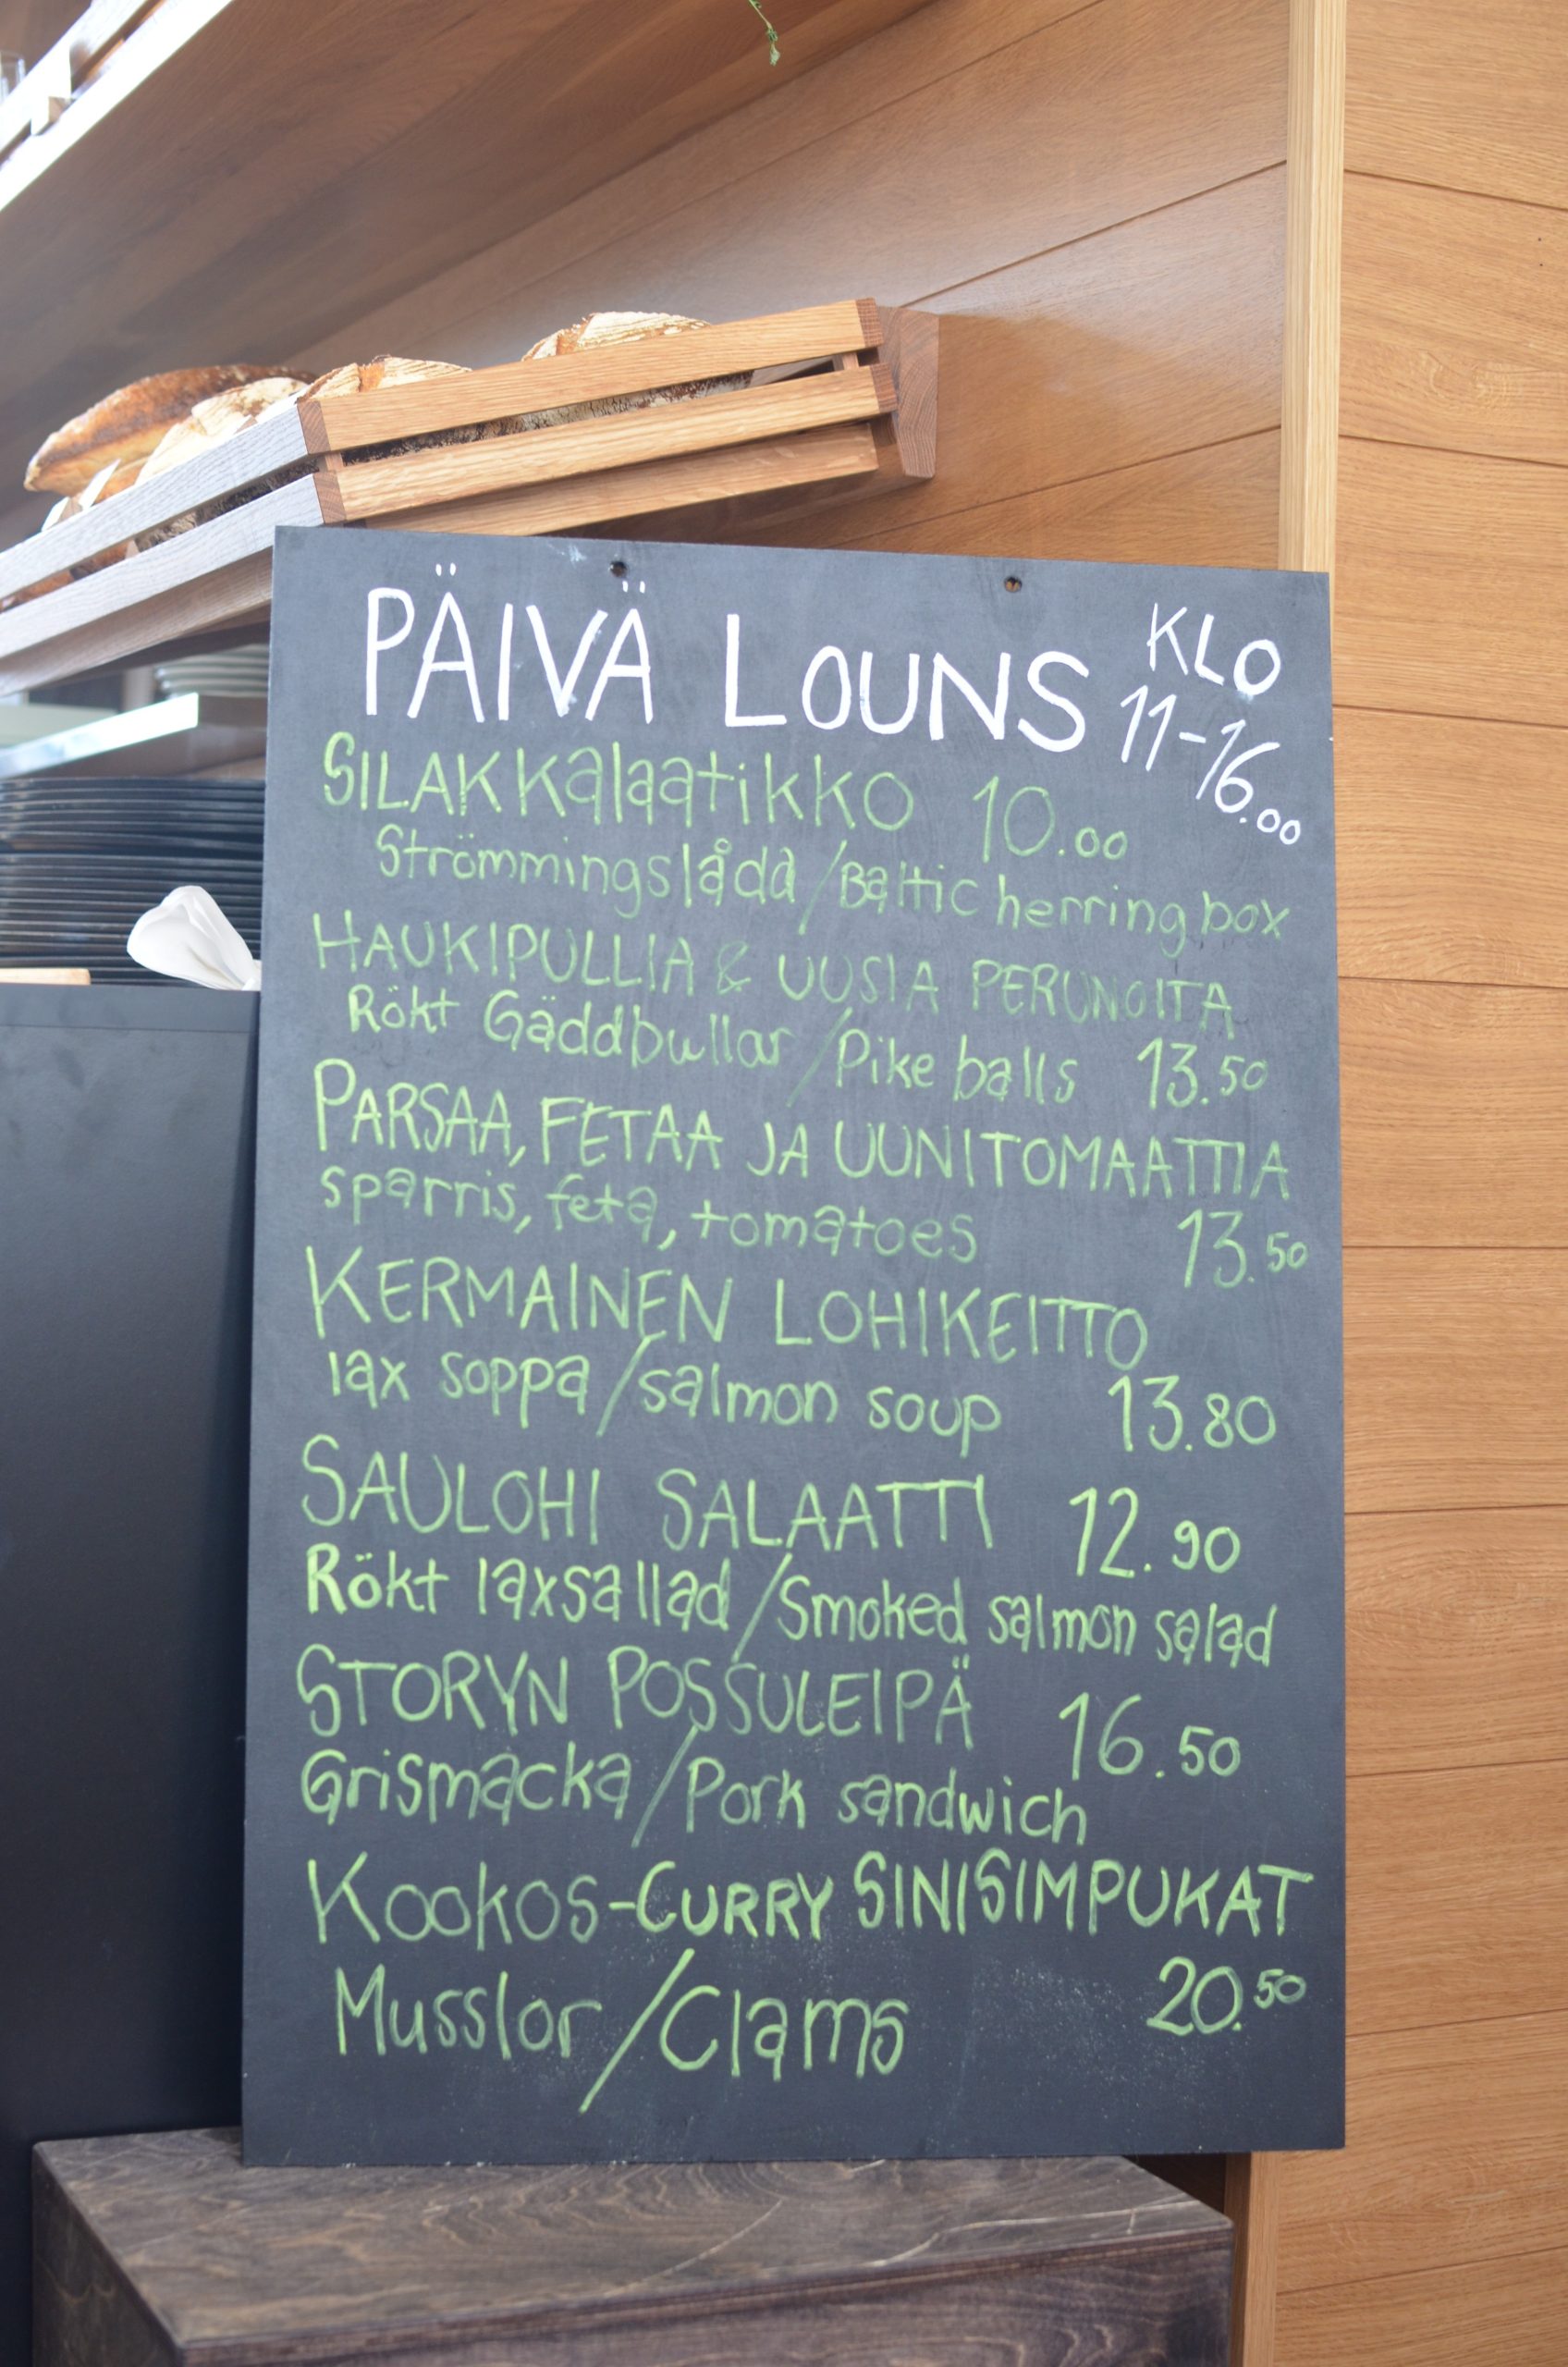 PÄIVÄ LOUNS KLO
11-16.00
SILAKKalaatikko 10.00
Strömmingslåda/Baltic herring box
HAUKIPULLIA & UUSIA PERUNOITA
Rökt Gäddbullar/Pike balls 13.50
PARSAA, FETAA JA UUNITOMAATTIA
sparris, feta, tomatoes 13.50
KERMAINEN LOHIKEITTO
lax soppa/salmon soup 13.80
SAULOHI SALAATTI 12.90
Rökt laxsallad/Smoked salmon salad
STORYN POSSULEIPÄ 16.50
Grismacka/Pork sandwich
Kookos-CURRY SINISIMPUKAT
Musslor/Clams 20.50